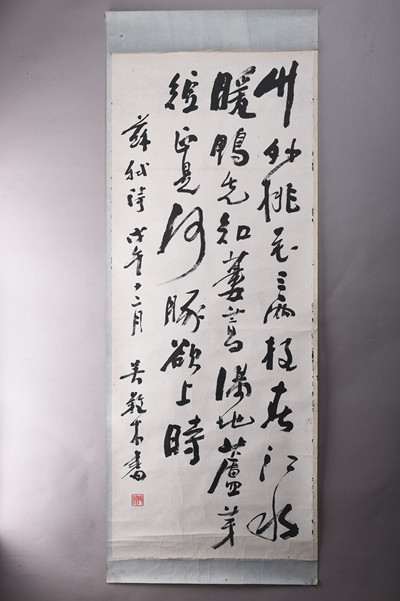 竹外桃花三兩枝春江水
暖鴨先知蔞蒿滿地蘆芽
短正是河豚欲上時
蘇軾詩 戊午十二月 吳木書